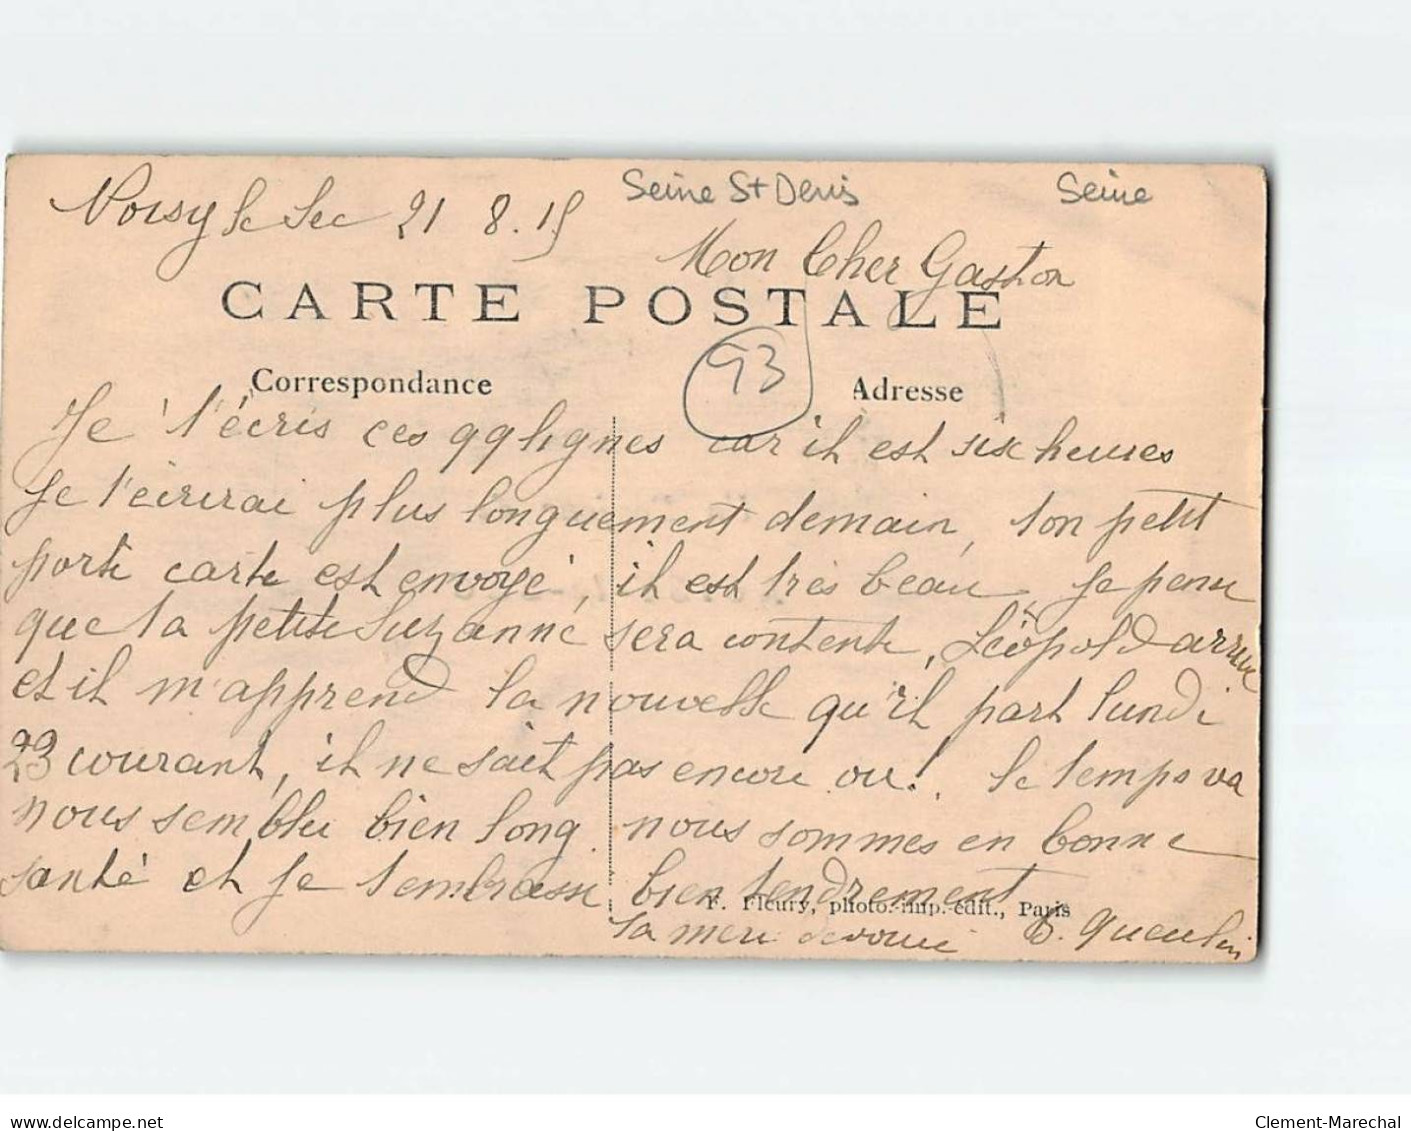 Noisy le Sec 21 8.15
Seine St Denis
Seine
Mon Cher Gaston
CARTE POSTALE
93
Correspondance
Adresse
Je t'écris ces qq lignes car il est six heures
Je t'écrirai plus longuement demain, ton petit
porte carte est envoyé, il est très beau Je pense
que ta petite Suzanne sera contente, Léopold arrive
et il m'apprend la nouvelle qu'il part lundi
23 courant, il ne sait pas encore ou! le temps va
nous semble bien long. nous sommes en bonne
santé et je t'embrasse bien tendrement
F. Fleury, photo.-imp.-édit., Paris
Ta mère dévouée
delcampe.net
Clement-Marechal